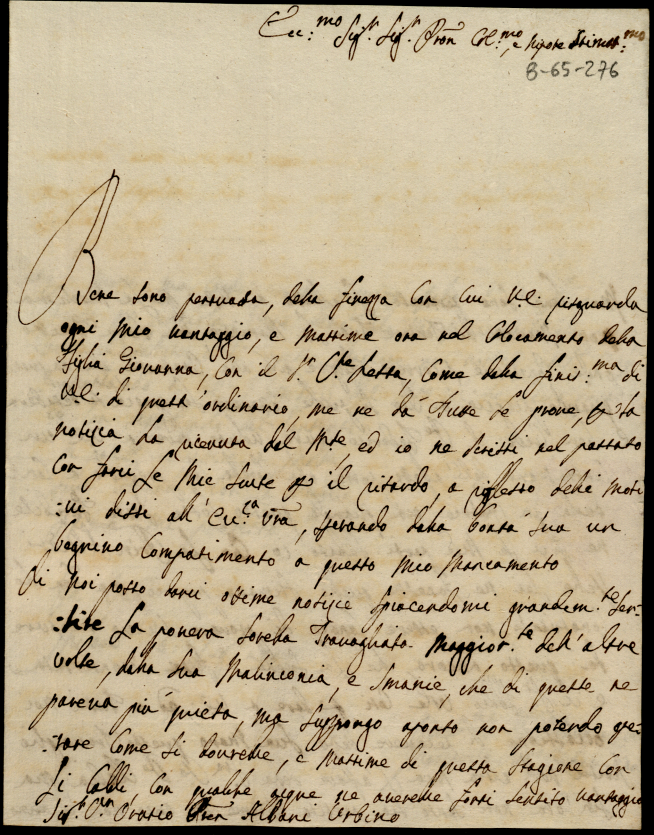 Ecc:mo Sig.r Sig.r Pron Col:mo, e Nipote Stimat:mo
8-65-276
Bene sono persuada, della finezza con cui V.E. risguarda
ogni mio vantaggio, e massime ora nel Colocamento della
Figlia Giovanna, con il S.r C.te Sessa, come dalla finis:ma di
V.E. di quest'ordinario, me ne dà tutte le prove, p la
notizia ha ricevuta dal M.te, ed io ne scrissi nel passato
con farci le mie scuse p il ritardo, a riflesso delli moti
:vi dissi all'Ecc:za Vra, sperando dalla bontà sua un
begnino Compatimento a questo mio mancamento
Di noi posso darci ottime notizie spiacendomi grandem.te sen-
:tire la povera sorella Travagliata Maggior.te dell'altre
volte, dalla sua Malinconia, e smanie, che di queste ne
pareva più quieta, ma suppongo aponto non potendo ope-
:rare come si dovrebbe, e massime di questa stagione con
li Caldi, con qualche aque ne averebbe forsi sentito vantaggio
Sig.r D. Orazio Pron Albani Urbino